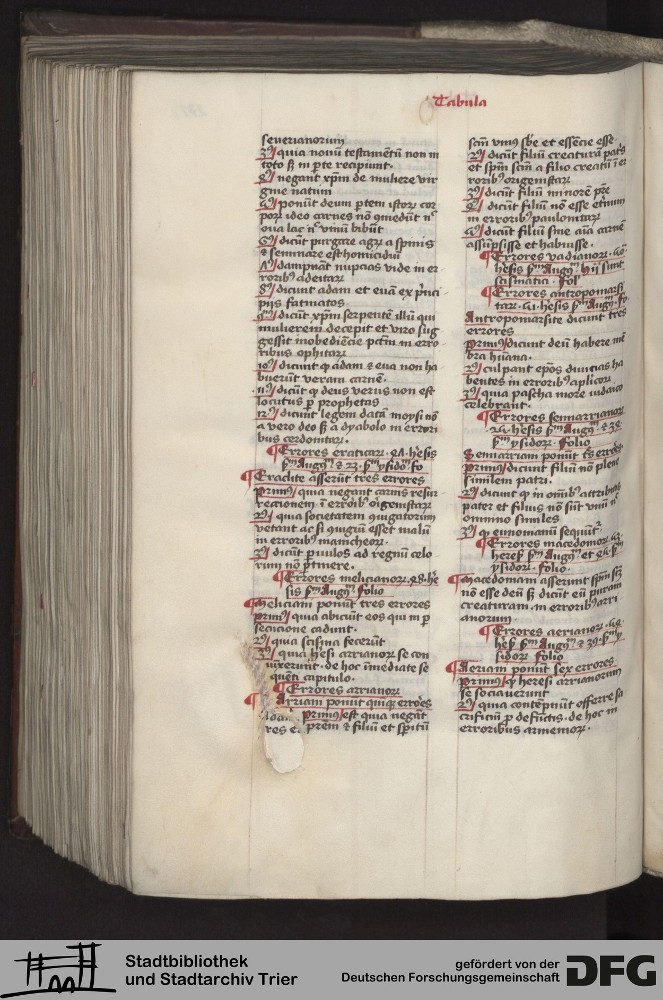 Tabula
severianorum
3ᵒ quia novū testamentū non in
toto sꝫ in p̄te recipiunt.
negant xpm̄ de muliere vir
gine natum
ponūt deum p̄tem istorꝝ cor
porꝝ ideo carnes nō
ova lac vinū bibūt
dicūt purgare agrꝝ a spinis
⁊ seminare est homicidiū
dampnāt nupcias vide in er
roribꝰ adeitarꝝ
dicunt adam et evā ex p̄nci
piis fatuatos
dicūt xpm̄ serpentē illū qui
mulierem decepit et viro sug
gessit inobediēcie pctm̄ in erro
ribus ophitarꝝ
10ᵒ dicūnt ꝙ adam ⁊ eva non ha
buerūt veram carnē.
11ᵒ dicūt ꝙ deus verus non est
locutus ꝑ prophetas
12ᵒ dicunt legem datā moysi nō
a vero deo sꝫ a dyabolo in errori
bus cerdonitarꝝ.
Errores eraticarꝝ. hēsis
Augᵐ ⁊ 23. ysidoꝝ fo
Eraclite asserūt tres errores
Primꝰ quia negant carnis resur
rectionem in erroribꝰ origenistarꝝ
2ᵒ quia societatem ꝯiugatorum
vetant ac si ꝯiugiū esset malū
in erroribꝰ manicheorꝝ.
3ᵒ dicūt p̄vulos ad regnū celo
rum nō p̄tinere.
Errores melicianorꝝ. 48. hē
sis Augᵐ folio
Meliciani ponūt tres errores
primꝰ quia abiciūt eos qui in ꝑ
secucione cadunt.
2ᵒ quia scisma fecerūt
3ᵒ quia hēsi arrianorꝝ se con
iūxerūt. de hoc īmediate se
quēti capitulo.
Errores arrianorꝝ
Arriani ponūt quinqꝫ errores
Primꝰ est quia negāt
res e p̄rem ⁊ filiū et spiritū
scm̄ unius sb̄e et essēcie esse.
2ᵒ dicūt filiū creaturā patris
et spm̄ scm̄ a filio creatū in er
roribꝰ origenistarꝝ
3ᵒ dicūt filiū minorē p̄re
4ᵒ dicūt filiū nō esse eternum
in erroribꝰ paulonitarꝝ
5ᵒ dicūt filiū sine aīa carnē
assūpsisse et habuisse.
Errores vadianorꝝ.
hēsis Augᵐ hii sunt
scismatici. Foꝉ
Errores antropomarsi
tarꝝ. hēsis Augᵐ. fo
Antropomarsite dicunt tres
errores
Primꝰ dicunt deū habere mē
bra hūana.
2ᵒ culpant epōs divicias ha
bentes in erroribꝰ apl̄icorꝝ
3ᵒ quia pascha more iudaico
celebrant.
Errores semiarrianorꝝ
hēsis Augᵐ ⁊
ysidorꝝ. folio
Semiarriani ponūt tˢ errōes
Primꝰ dicunt filiū nō plene
similem patri.
2ᵒ dicūnt ꝙ in om̄ibꝰ attributis
pater et filius nō sūt unū nᶜ
omnino similes
3ᵒ ꝙ eunomianū sequūtʳ
Errores macedoniorꝝ
heresꝭ Augᵐ et
ysidorꝝ. folio.
Macedoniani asserunt spm̄ scm̄
nō esse deū sꝫ dicūt eū puram
creaturam. in erroribꝰ arri
anorum
Errores aerianorꝝ.
hēsꝭ Augᵐ ⁊ y
sidorꝝ folio
Aeriani ponūt sex errores
Primꝰ ꝙ heresi arrianorum
se sociaverunt
2ᵒ quia contēpnūt offerre sa
crificiū ꝑ defūctis. de hoc in
erroribus armeniorꝝ.
Stadtbibliothek
und Stadtarchiv Trier
gefördert von der
Deutschen Forschungsgemeinschaft
DFG